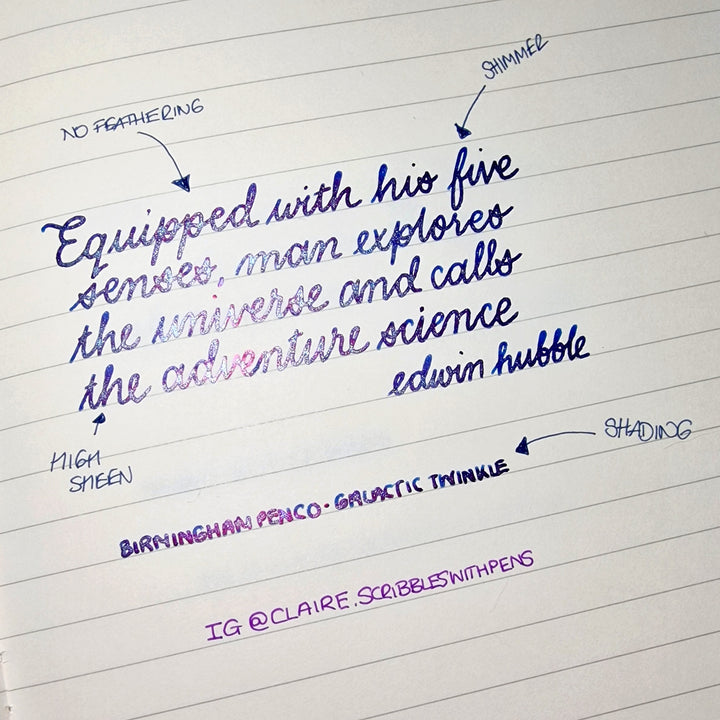 SHIMMER
NO FEATHERING
Equipped with his five
senses, man explores
the universe and calls
the adventure science
edwin hubble
HIGH
SHEEN
SHADING
BIRMINGHAM PENCO · GALACTIC TWINKLE
IG @CLAIRE.SCRIBBLESWITHPENS